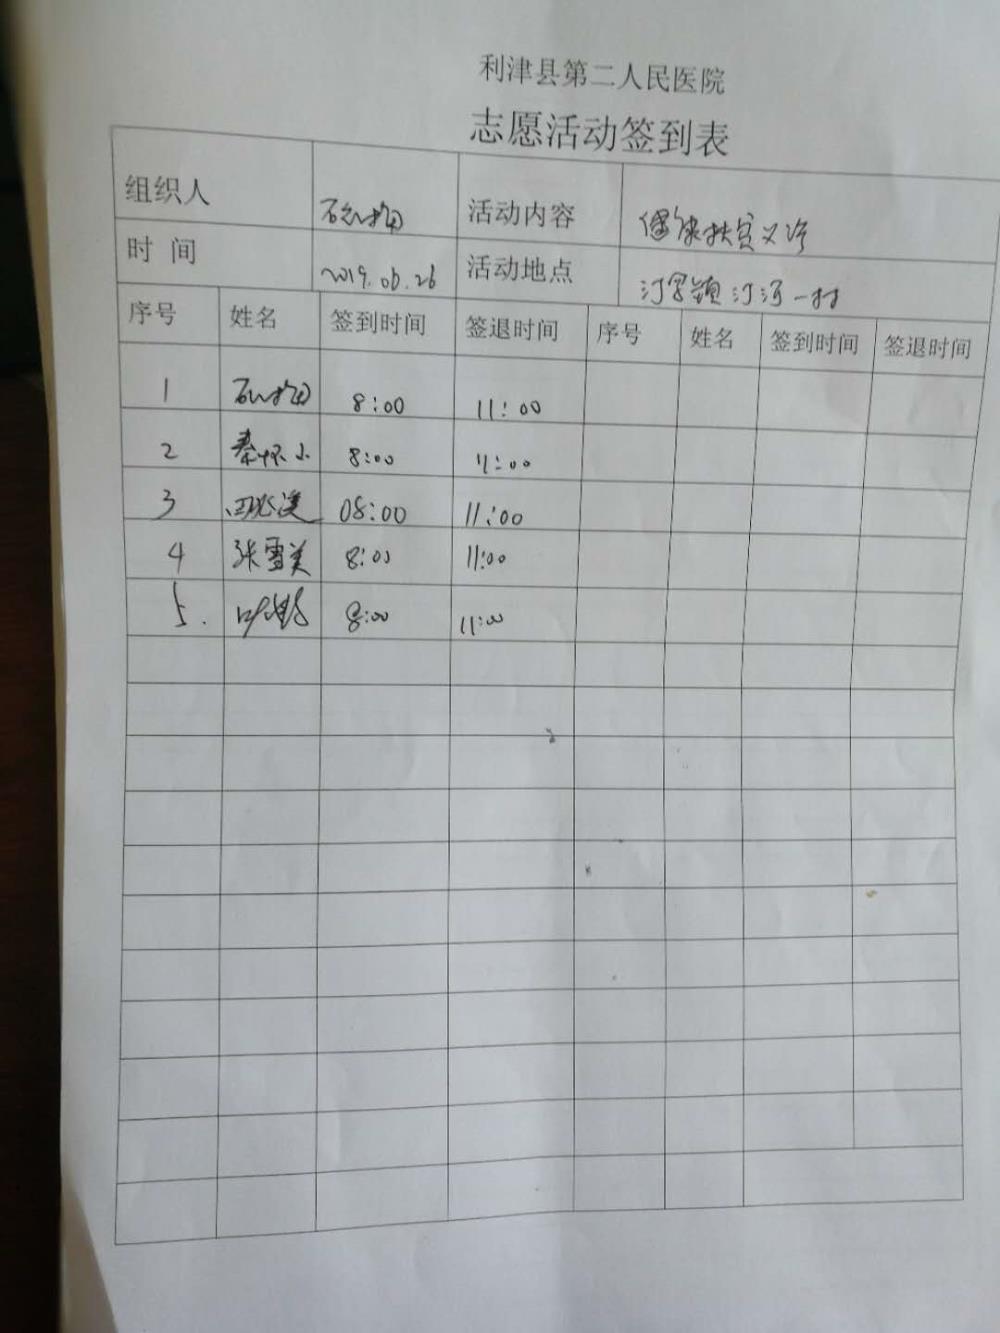 利津县第二人民医院
志愿活动签到表
组织人 活动内容 健康扶贫义诊
时 间 2019.06.26 活动地点 汀罗镇汀河一村
序号 姓名 签到时间 签退时间 序号 姓名 签到时间 签退时间
1 8:00 11:00
2 秦怀小 8:00 11:00
3 08:00 11:00
4 张雪美 8:00 11:00
5. 8:00 11:00